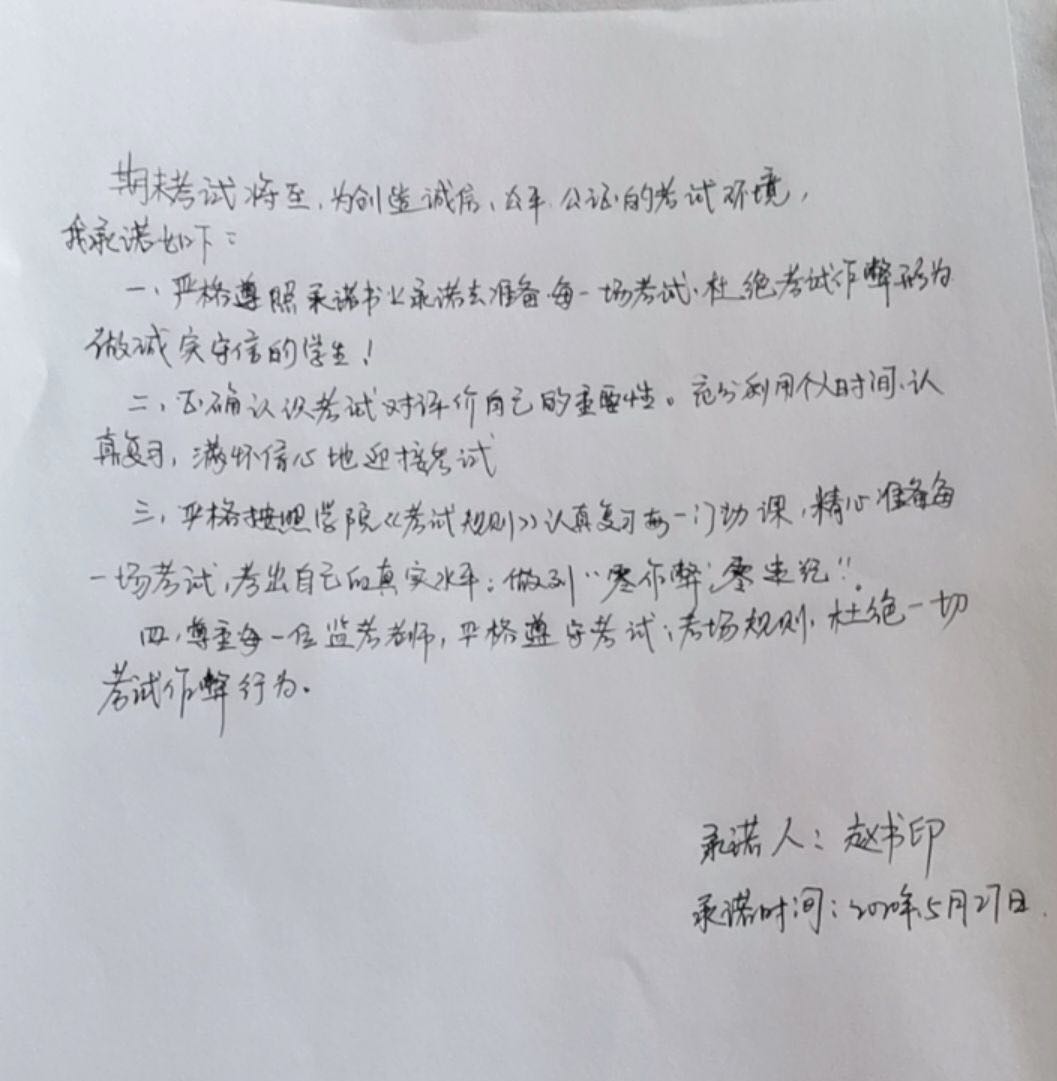 期末考试将至、为创造诚信、公平、公证的考试环境，
我承诺如下：
一、严格遵照承诺书上承诺去准备每一场考试、杜绝考试作弊行为
做诚实守信的学生！
二、正确认识考试对评价自己的重要性。充分利用个人时间、认
真复习，满怀信心地迎接考试
三、严格按照学院《考试规则》认真复习每一门功课，精心准备每
一场考试，考出自己的真实水平；做到“零作弊、零违纪”！
四、尊重每一位监考老师，严格遵守考试；考场规则，杜绝一切
考试作弊行为。
承诺人：赵书印
承诺时间：2020年5月27日.